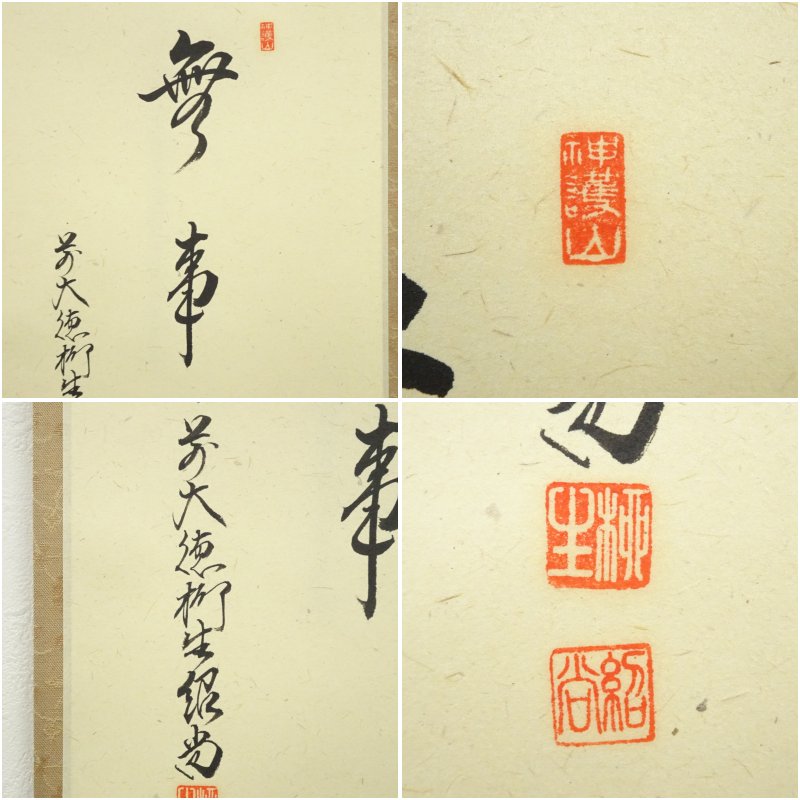 神護山
無事
前大徳柳生
神護山
事
前大徳柳生紹尚
柳生
紹尚